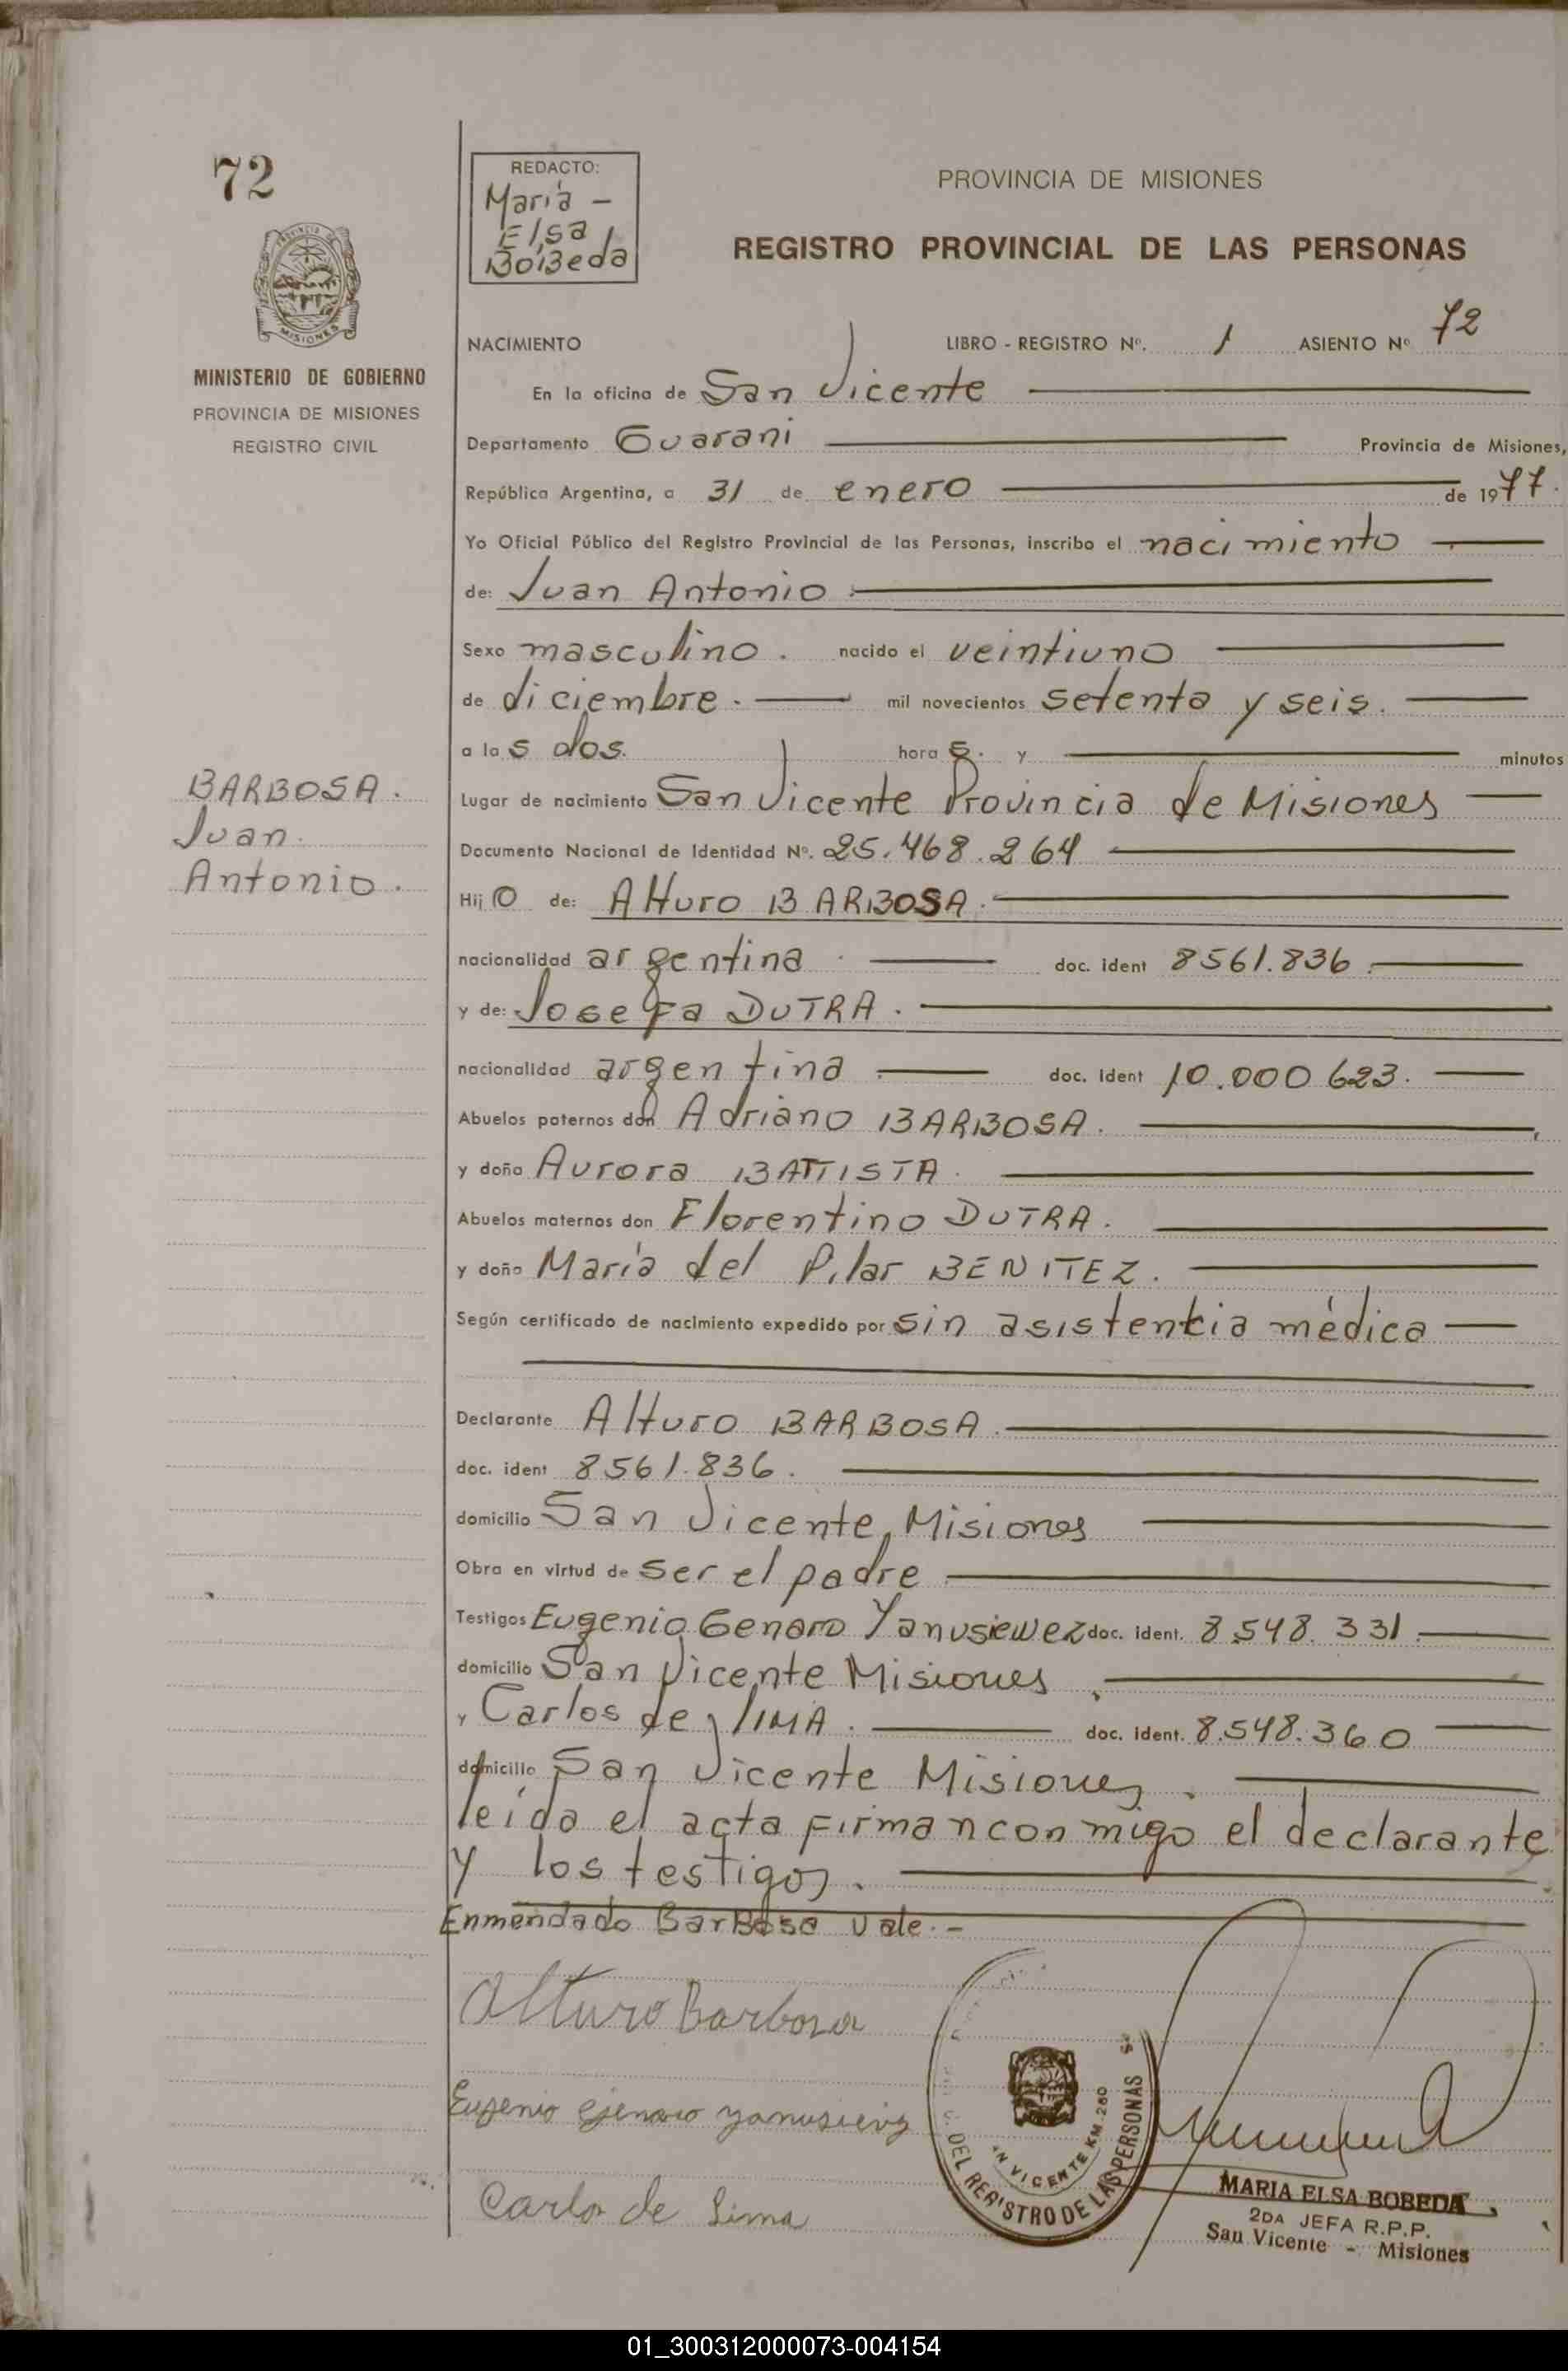 72
REDACTO:
María -
Elsa
BoBeda
PROVINCIA DE MISIONES
REGISTRO PROVINCIAL DE LAS PERSONAS
MISIONES
MINISTERIO DE GOBIERNO
PROVINCIA DE MISIONES
REGISTRO CIVIL
NACIMIENTO LIBRO - REGISTRO Nº. 1 ASIENTO Nº 72
En la oficina de San Vicente
Departamento Guarani Provincia de Misiones,
República Argentina, a 31 de enero de 1977.
Yo Oficial Público del Registro Provincial de las Personas, inscribo el nacimiento
de: Juan Antonio
Sexo masculino. nacido el veintiuno
de diciembre. mil novecientos setenta y seis.
a las dos. horas. y minutos
Lugar de nacimiento San Vicente Provincia de Misiones
BARBOSA.
Juan.
Antonio.
Documento Nacional de Identidad Nº. 25.468.264
Hijo de: Alturo BARBOSA.
nacionalidad argentina doc. ident 8561.836.
y de: Josefa DUTRA.
nacionalidad argentina doc. ident 10.000623.
Abuelos paternos don Adriano BARBOSA.
y doña Aurora BATTISTA.
Abuelos maternos don Florentino DUTRA.
y doña María del Pilar BENITEZ.
Según certificado de nacimiento expedido por sin asistentcia médica
Declarante Alturo BARBOSA.
doc. ident 8561.836.
domicilio San Vicente, Misiones
Obra en virtud de ser el padre
Testigos Eugenio Genaro Yanusiewez doc. ident. 8.548.331.
domicilio San Vicente Misiones
y Carlos de LIMA. doc. ident. 8.548.360
domicilio San Vicente Misiones.
leída el acta firman conmigo el declarante
y los testigos.
Enmendado Barbosa vale.-
Alturo Barbosa
Eugenio Genaro yanusievz
Carlo de Lima
DEL REGISTRO DE LAS PERSONAS
VICENTE KM. 280
MARIA ELSA BOBEDA
2DA JEFA R.P.P.
San Vicente - Misiones
01_300312000073-004154